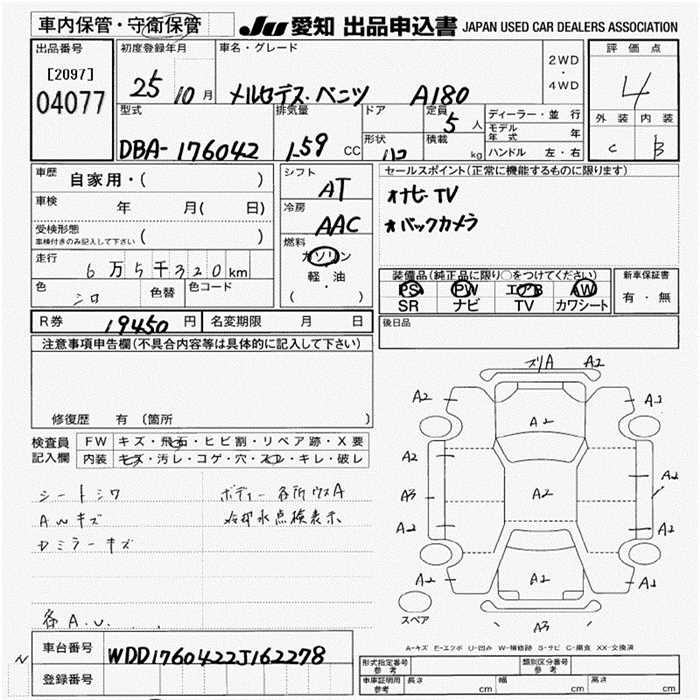 車内保管・守衛保管
JU 愛知 出品申込書 JAPAN USED CAR DEALERS ASSOCIATION
出品番号
[2097]
04077
初度登録年月
25 10月
車名・グレード
メルセデス・ベンツ A180
2WD
・
4WD
評価点
4
外装 内装
C B
型式
DBA-176042
排気量
1.59 CC
ドア
形状
定員
5人
積載
kg
ディーラー・並行
モデル年式 年
ハンドル 左・右
車歴
自家用・( )
車検 年 月( 日)
受検形態
車検付きのみ記入して下さい ( )
走行
6万5千320km
色
シロ
色替
色コード
シフト
AT
冷房
AAC
燃料
ガソリン
軽・油
( )
セールスポイント(正常に機能するものに限ります)
オナビ・TV
オバックカメラ
装備品(純正品に限り○をつけてください)
PS PW エアB AW
SR ナビ TV カワシート
新車保証書
有・無
R券 19450円
名変期限 月 日
後日品
注意事項申告欄(不具合内容等は具体的に記入して下さい)
修復歴 有 (箇所 )
検査員
記入欄
FW キズ・飛石・ヒビ割・リペア跡・X要
内装 キズ・汚レ・コゲ・穴・スレ・キレ・破レ
シートシワ
AWキズ
Dミラーキズ
ボディー各所ウスA
冷却水点検表示
各A.U.
ズリA A2
A2 A2 A2
A2 A2
A3 A2 A2
A2 A2
A2 A2 A2
A3
スペア
A-キズ E-エクボ U-凹み W-補修跡 S-サビ C-腐食 XX-交換済
車台番号
WDD1760422J162278
登録番号
形式指定番号
参考
類別区分番号
参考
車庫証明用
参考
長さ cm
幅 cm
高さ cm